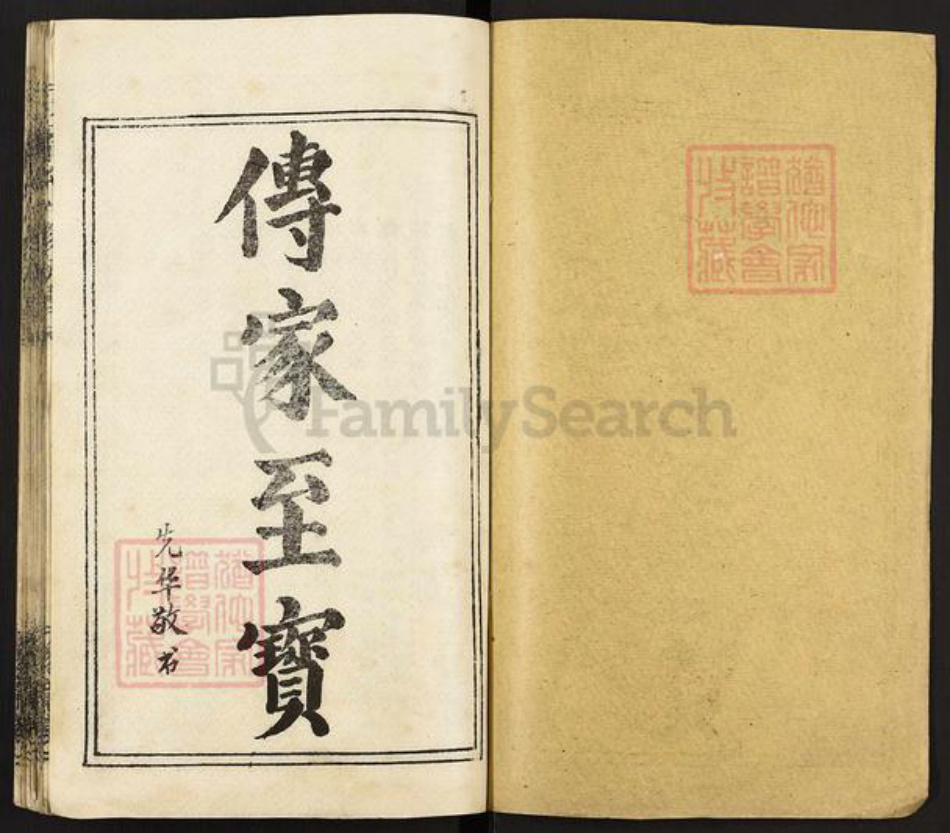 傳家至寶
先华敬书
FamilySearch